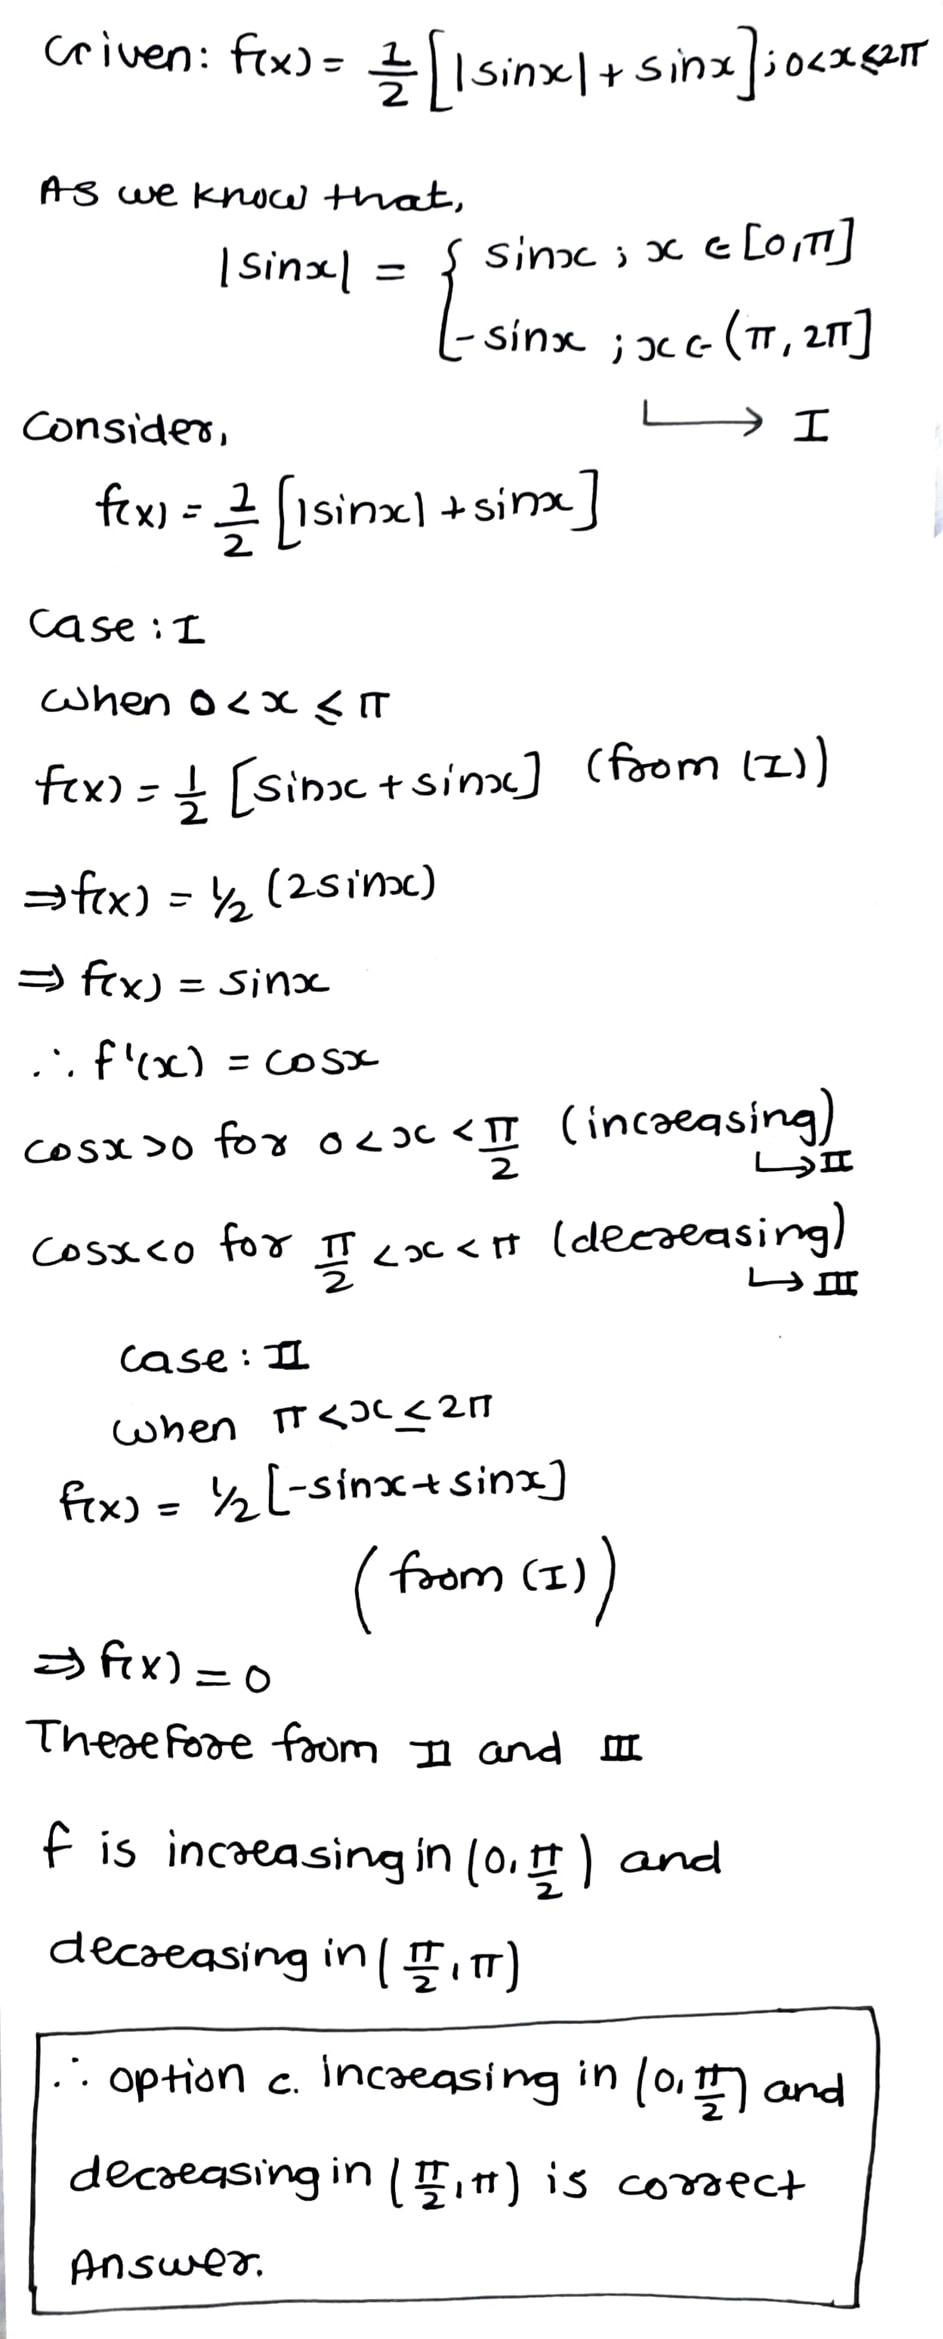 Given: f(x) = 1/2 [|sinx| + sinx] ; 0<x≤2π
As we know that,
|sinx| = { sinx ; x ∈ [0,π]
-sinx ; x ∈ (π, 2π]
→ I
Consider,
f(x) = 1/2 [|sinx| + sinx]
Case : I
When 0 < x ≤ π
f(x) = 1/2 [sinx + sinx] (from (I))
⇒ f(x) = 1/2 (2sinx)
⇒ f(x) = sinx
∴ f'(x) = cosx
cosx>0 for 0<x<π/2 (increasing)
↳ II
cosx<0 for π/2 <x<π (decreasing)
↳ III
case : II
when π<x≤2π
f(x) = 1/2 [-sinx+sinx]
(from (I))
⇒ f(x) = 0
Therefore from II and III
f is increasing in (0, π/2) and
decreasing in (π/2, π)
∴ option c. increasing in (0, π/2) and
decreasing in (π/2, π) is correct
Answer.